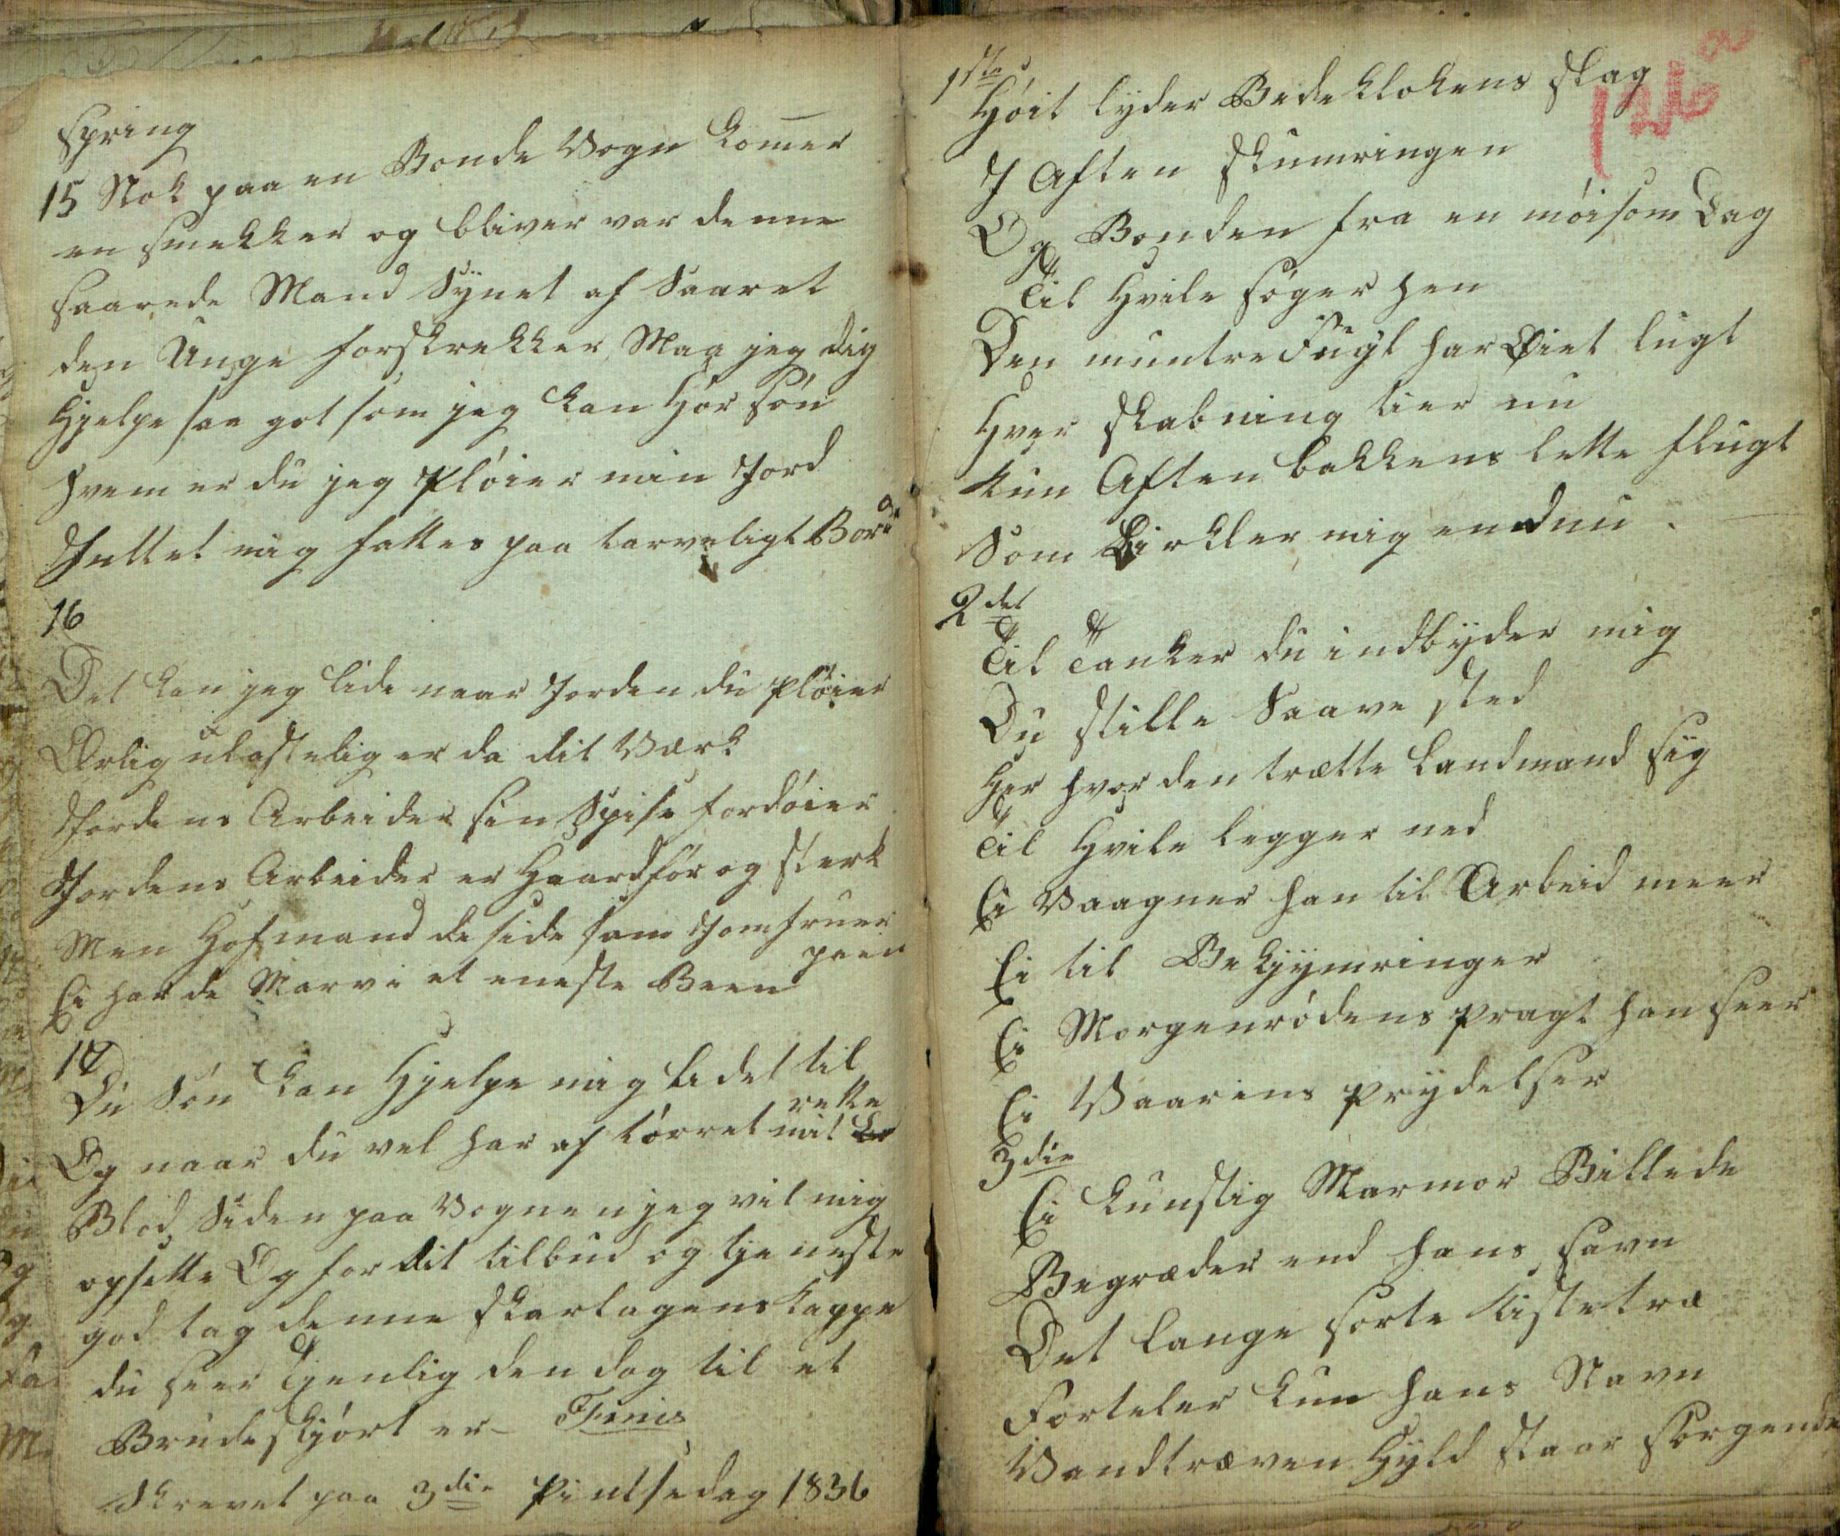 Spring
15 Nok paa en Bonde Vogn komer
en smekker og bliver var denne
saarede Mand Synet af Saaret
den Unge forskrekker, Maa jeg dig
Hjelpe saa got som jeg kan Hør Søn
Hvem er du jeg Pløier min Jord
Intet mig fattes paa tarveligt Bord
16
Det kan jeg lide naar Jorden du pløier
Ærlig ulastelig er da dit Værk
Jordens Arbeider sin Spise fordøier
Jordens Arbeider er Haardfør og sterk
Men Hofmand de side som Jomfruer
paa en
Ei har de Marv i et eneste Been
17
Du Søn kan Hjelpe mig lidet til
rette
Og naar du vel har af tørret mit
Blod, Siden paa Vognen jeg vil mig
opsette Og for dit tilbud og tjeneste
god tag denne Skarlagens kappe
du seer Tjenlig den dog til et
Brudeskjørt er – Finis
Skrevet paa 3die Pintsedag 1836
1ste
Høit lyder Bedeklokens Slag
I Aften Skumringen
Og Bonden fra en møisom Dag
Til Hvile søger hen
Den muntre Fugl har Øiet lugt
Hver Skabning tier nu
Kun Aften bakkens lette flugt
Som Cirkler mig endnu.
2det
Til Tanker du indbyder mig
Du stille Saave sted
Her hvor den trætte Landmand sig
Til Hvile legger ned
Ei Vaagner han til Arbeid meer
Ei til Bekjymringer
Ei Morgenrødens pragt han seer
Ei Vaarens prydelser
3die
Ei kunstig Marmor Billede
Begræder end hans Savn
Det lange sorte Kistetræ
Forteler kun hans Navn
Vandtræven Hyld staar sørgende